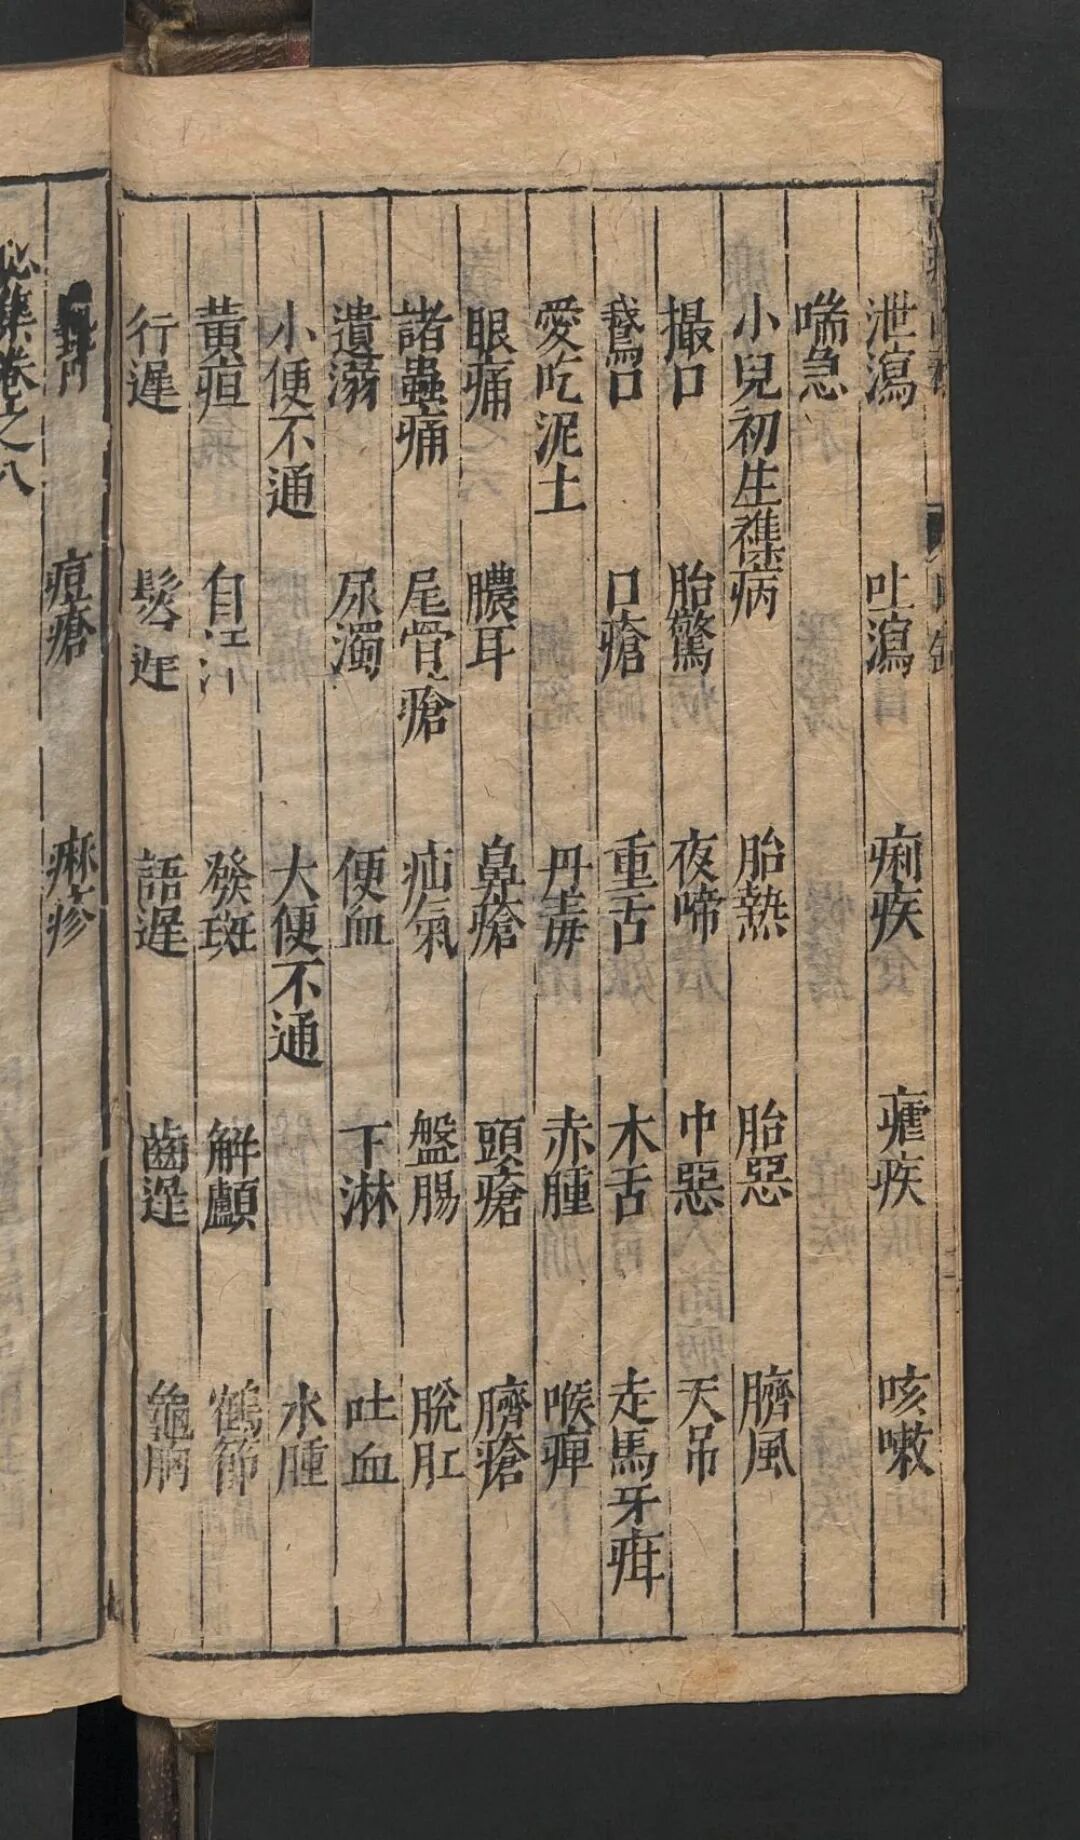 泄瀉 吐瀉 痢疾 瘧疾 咳嗽
喘急
小兒初生襍病 胎熱 胎惡 臍風
撮口 胎驚 夜啼 中惡 天吊
鵝口 口瘡 重舌 木舌 走馬牙疳
愛吃泥土 丹毒 赤腫 喉痺
眼痛 膿耳 鼻瘡 頭瘡 臍瘡
諸蟲痛 尾骨瘡 疝氣 盤腸 脫肛
遺溺 尿濁 便血 下淋 吐血
小便不通 大便不通 水腫
黃疸 自汗 發斑 解顱 鶴節
行遲 髮遲 語遲 齒遲 龜胸
痘瘡 痳疹
卷之八